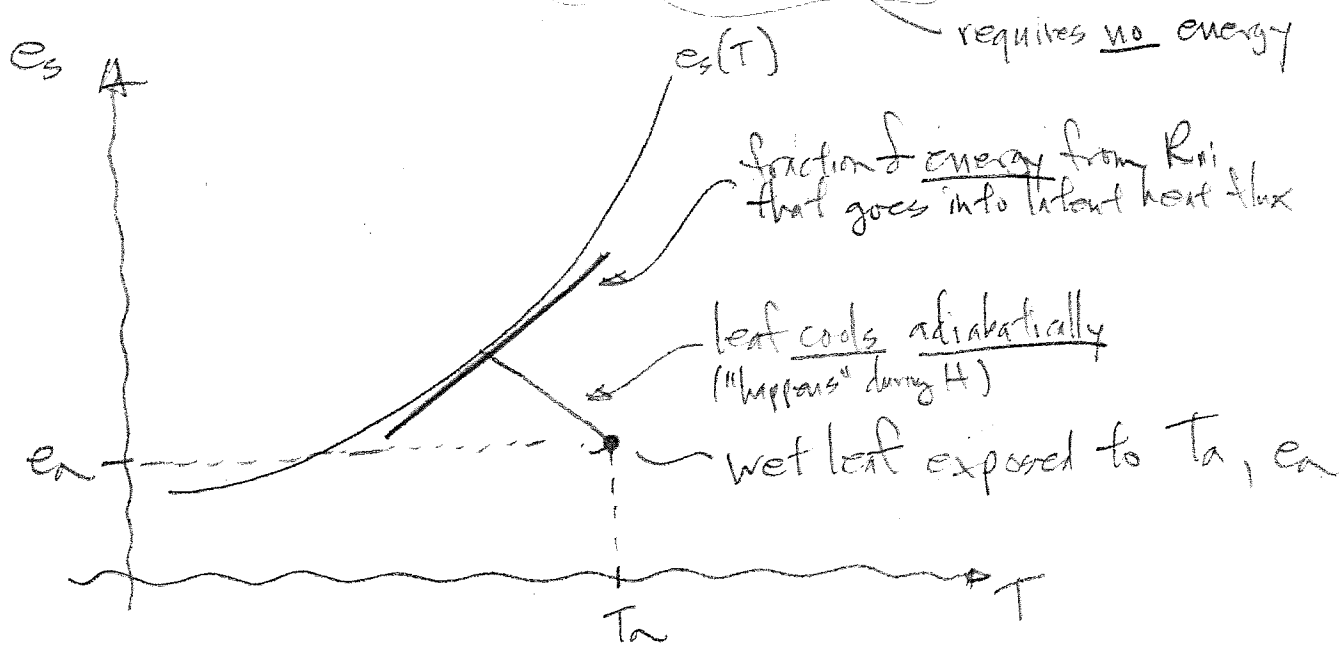 requires no energy
eₛ
eₛ(T)
fraction of energy from Rni
that goes into latent heat flux
leaf cools adiabatically
("happens" during H)
eₐ
wet leaf exposed to Ta, ea
T
Ta